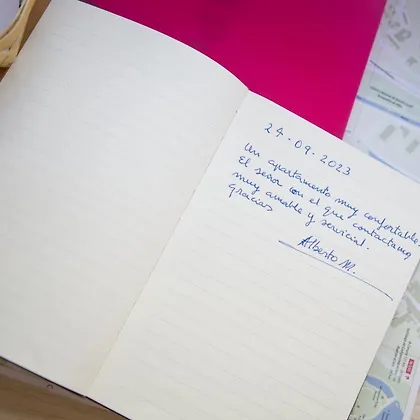 24-09-2023
Un apartamento muy confortable.
El señor con el que contactamos
muy amable y servicial.
gracias
Alberto M.